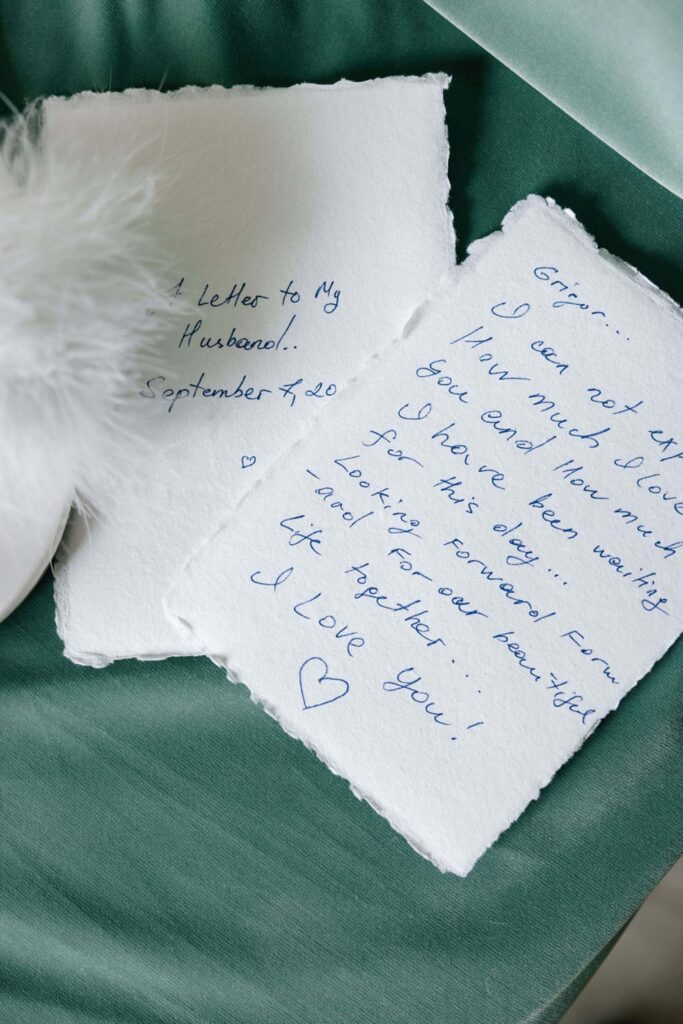 A Letter to My
Husband..
September 7, 20
Grigor...
I can not exp
How much I love
you and How much
I have been waiting
for this day...
Looking Forward Form
-and For our beautiful
Life together....
I Love you!